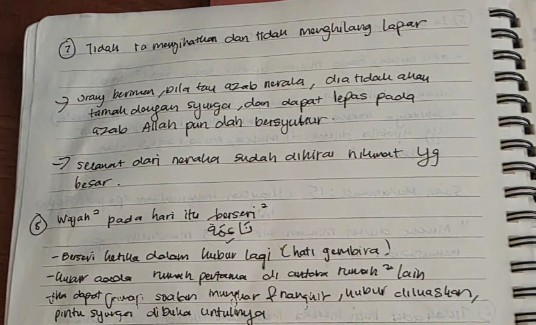 ⑦ Tidak ia mengihatkan dan tidak menghilang lapar
→ orang beriman, bila tau azab neraka, dia tidak akan
tamak dengan syurga, dan dapat lepas pada
azab Allah pun dah bersyukur.
→ selamat dari neraka sudah dikira nikmat yg
besar.
⑧ Wajah² pada hari itu berseri²
- Berseri ketika dalam kubur lagi (hati gembira)
- kubur adala rumah pertama di antara rumah² lain
dapat soalan mungkar & nangkir, kubur diluaskan,
pintu syurga dibuka untuknya